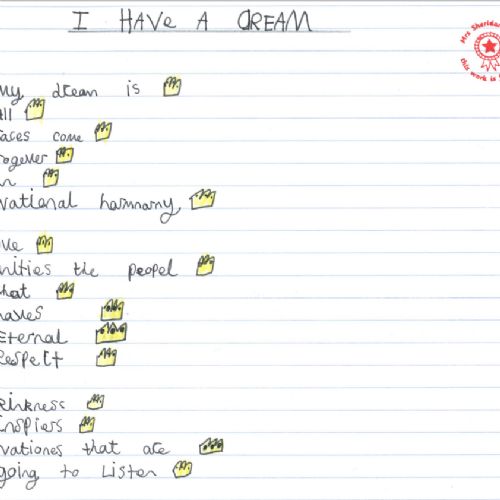 I HAVE A DREAM
Mrs Sheridan
this work is
My dream is
All
Races come
Together
In
National harmnamy
Love
Unities the peopel
That
Haves
Eternal
Respect
Kinkness
Inspiers
Nationes that are
going to Listen